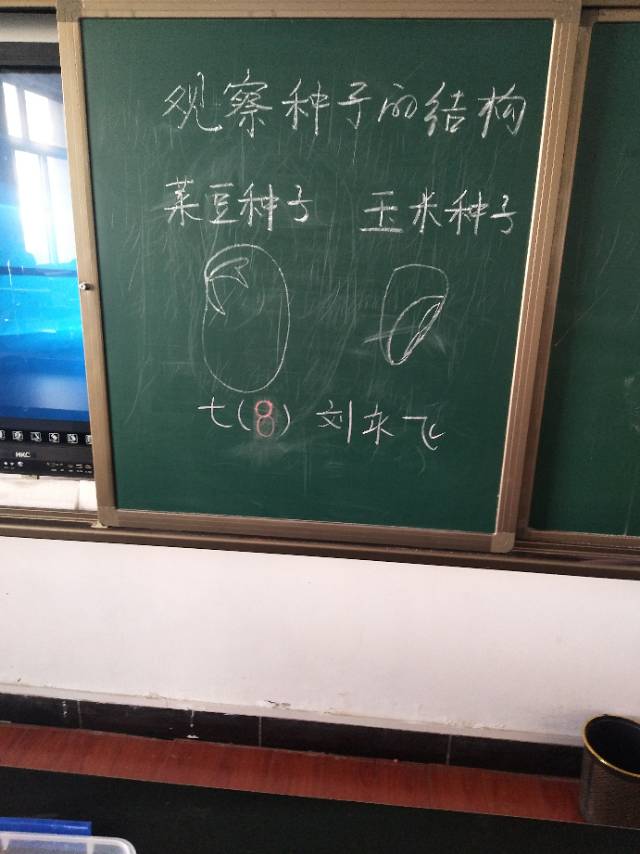 观察种子的结构
菜豆种子 玉米种子
七(8) 刘来飞
HKC